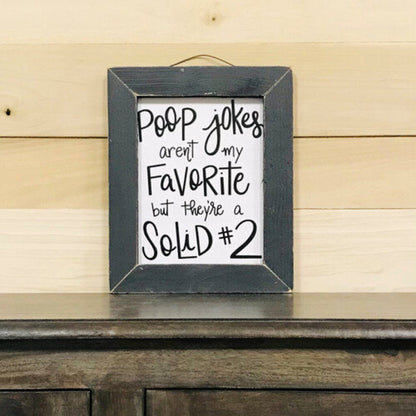 POOP jokes
aren't my
FAVORITE
but they're a
SOLID #2